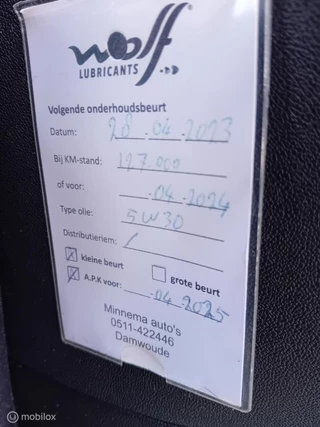 wolf
LUBRICANTS
Volgende onderhoudsbeurt
Datum: 20 .04 .2023
Bij KM-stand: 127.000
of voor: .04 .2024
Type olie: 5W30
Distributieriem: /
X kleine beurt grote beurt
X A.P.K voor: .04 .2025
Minnema auto's
0511-422446
Damwoude
© mobilox